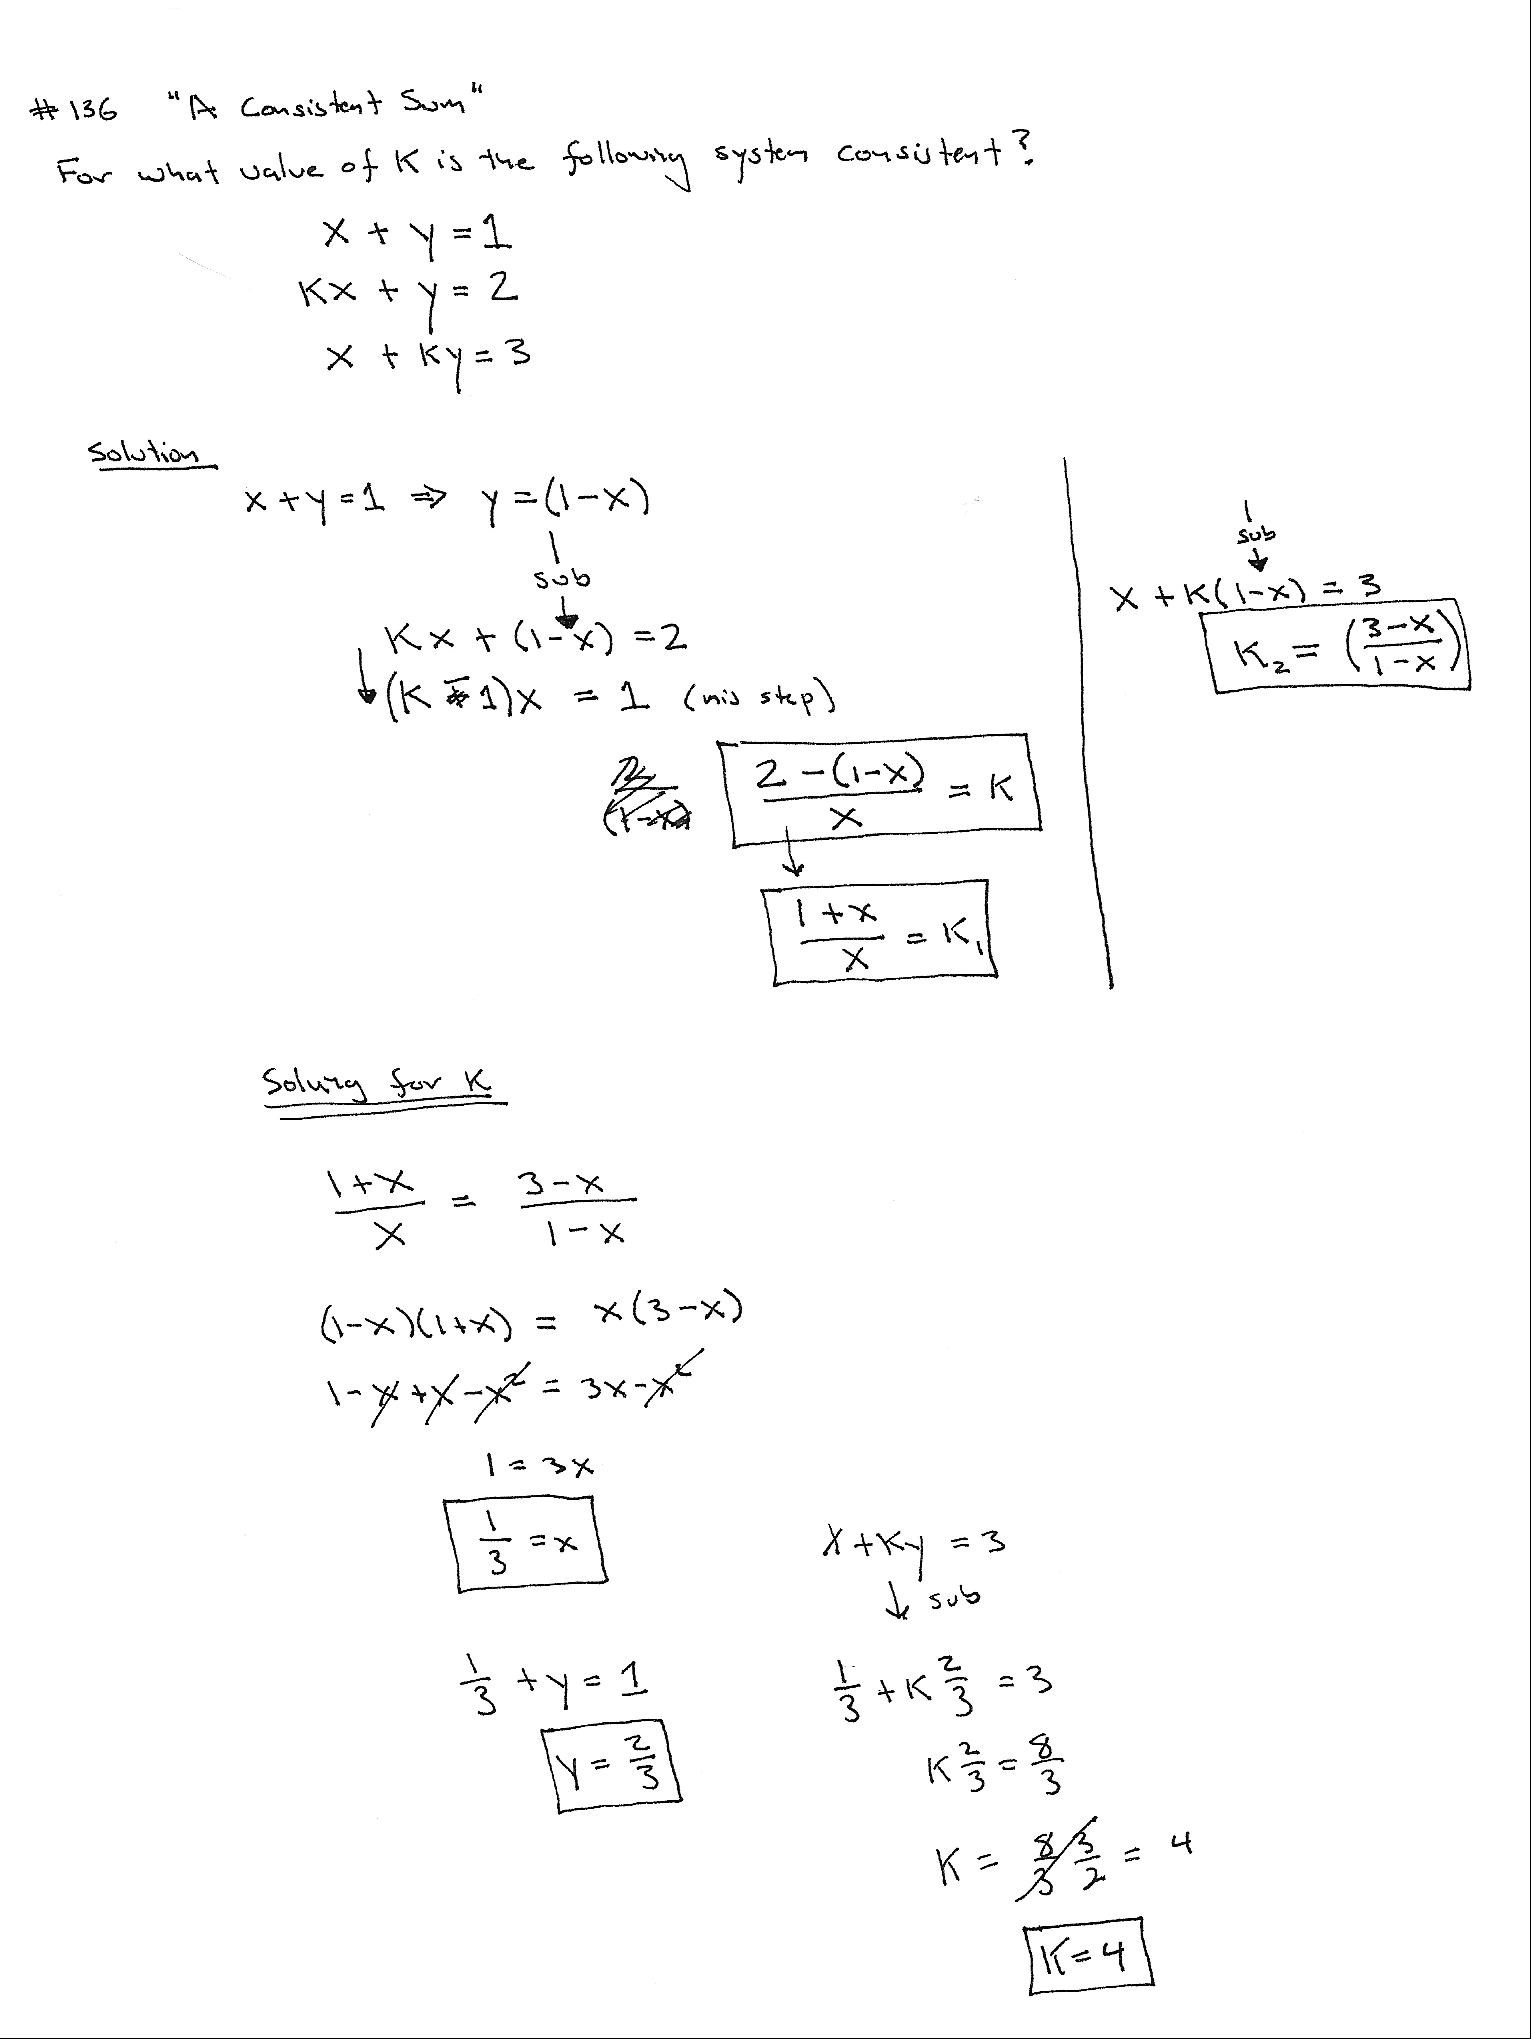 #136 "A Consistent Sum"
For what value of K is the following system consistent?
x + y = 1
Kx + y = 2
x + Ky = 3
Solution
x + y = 1 ⇒ y = (1-x)
sub
Kx + (1-x) = 2
(K - 1)x = 1 (mis step)
2-(1-x)/x = K
1+x/x = K₁
sub
x + K(1-x) = 3
K₂ = (3-x/1-x)
Solving for K
1+x/x = 3-x/1-x
(1-x)(1+x) = x(3-x)
1-x+x-x² = 3x-x²
1 = 3x
1/3 = x
1/3 + y = 1
y = 2/3
x + Ky = 3
↓ sub
1/3 + K 2/3 = 3
K 2/3 = 8/3
K = 8/3 3/2 = 4
K = 4